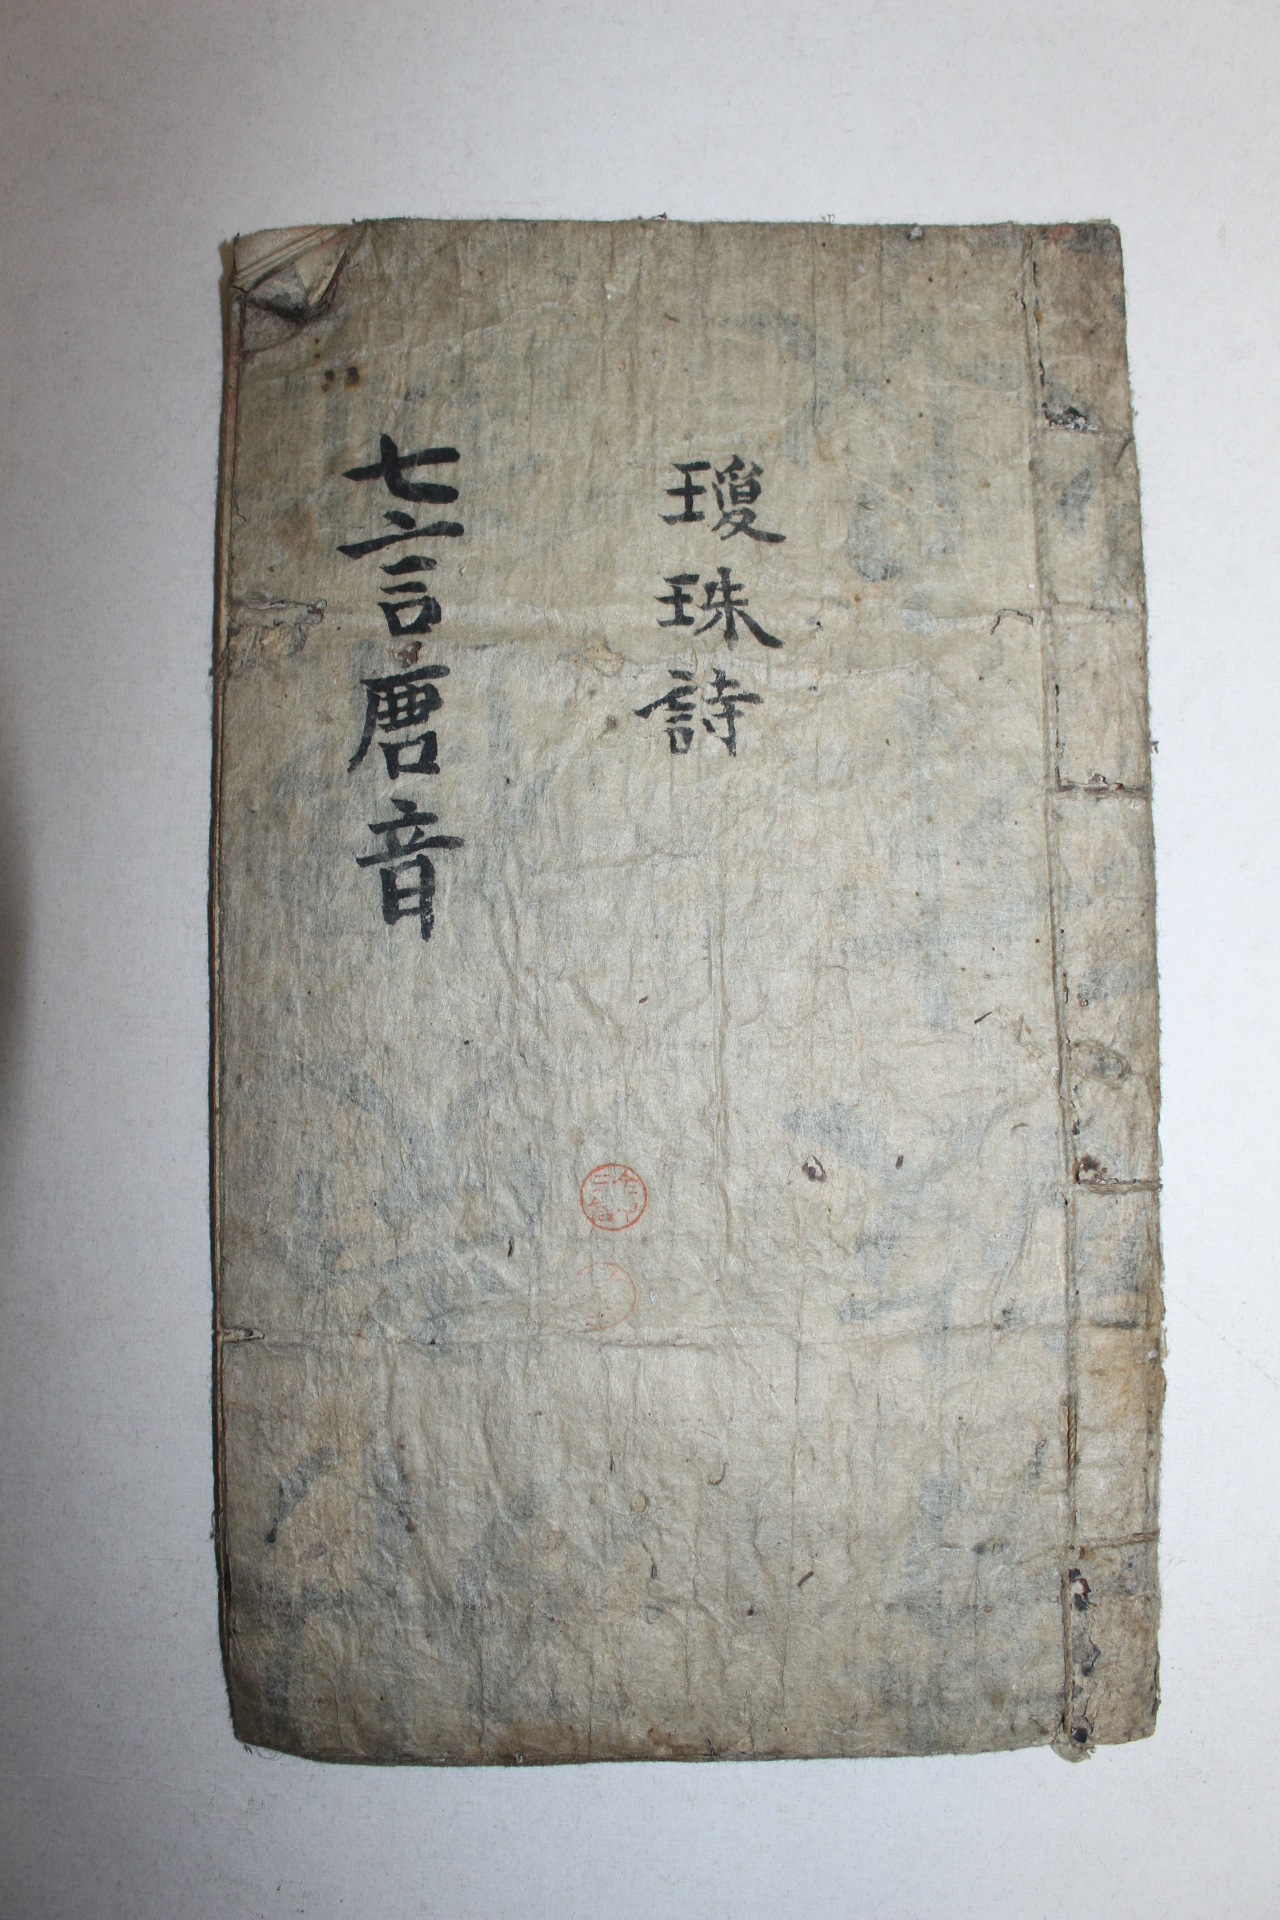 瓊珠詩
七言唐音